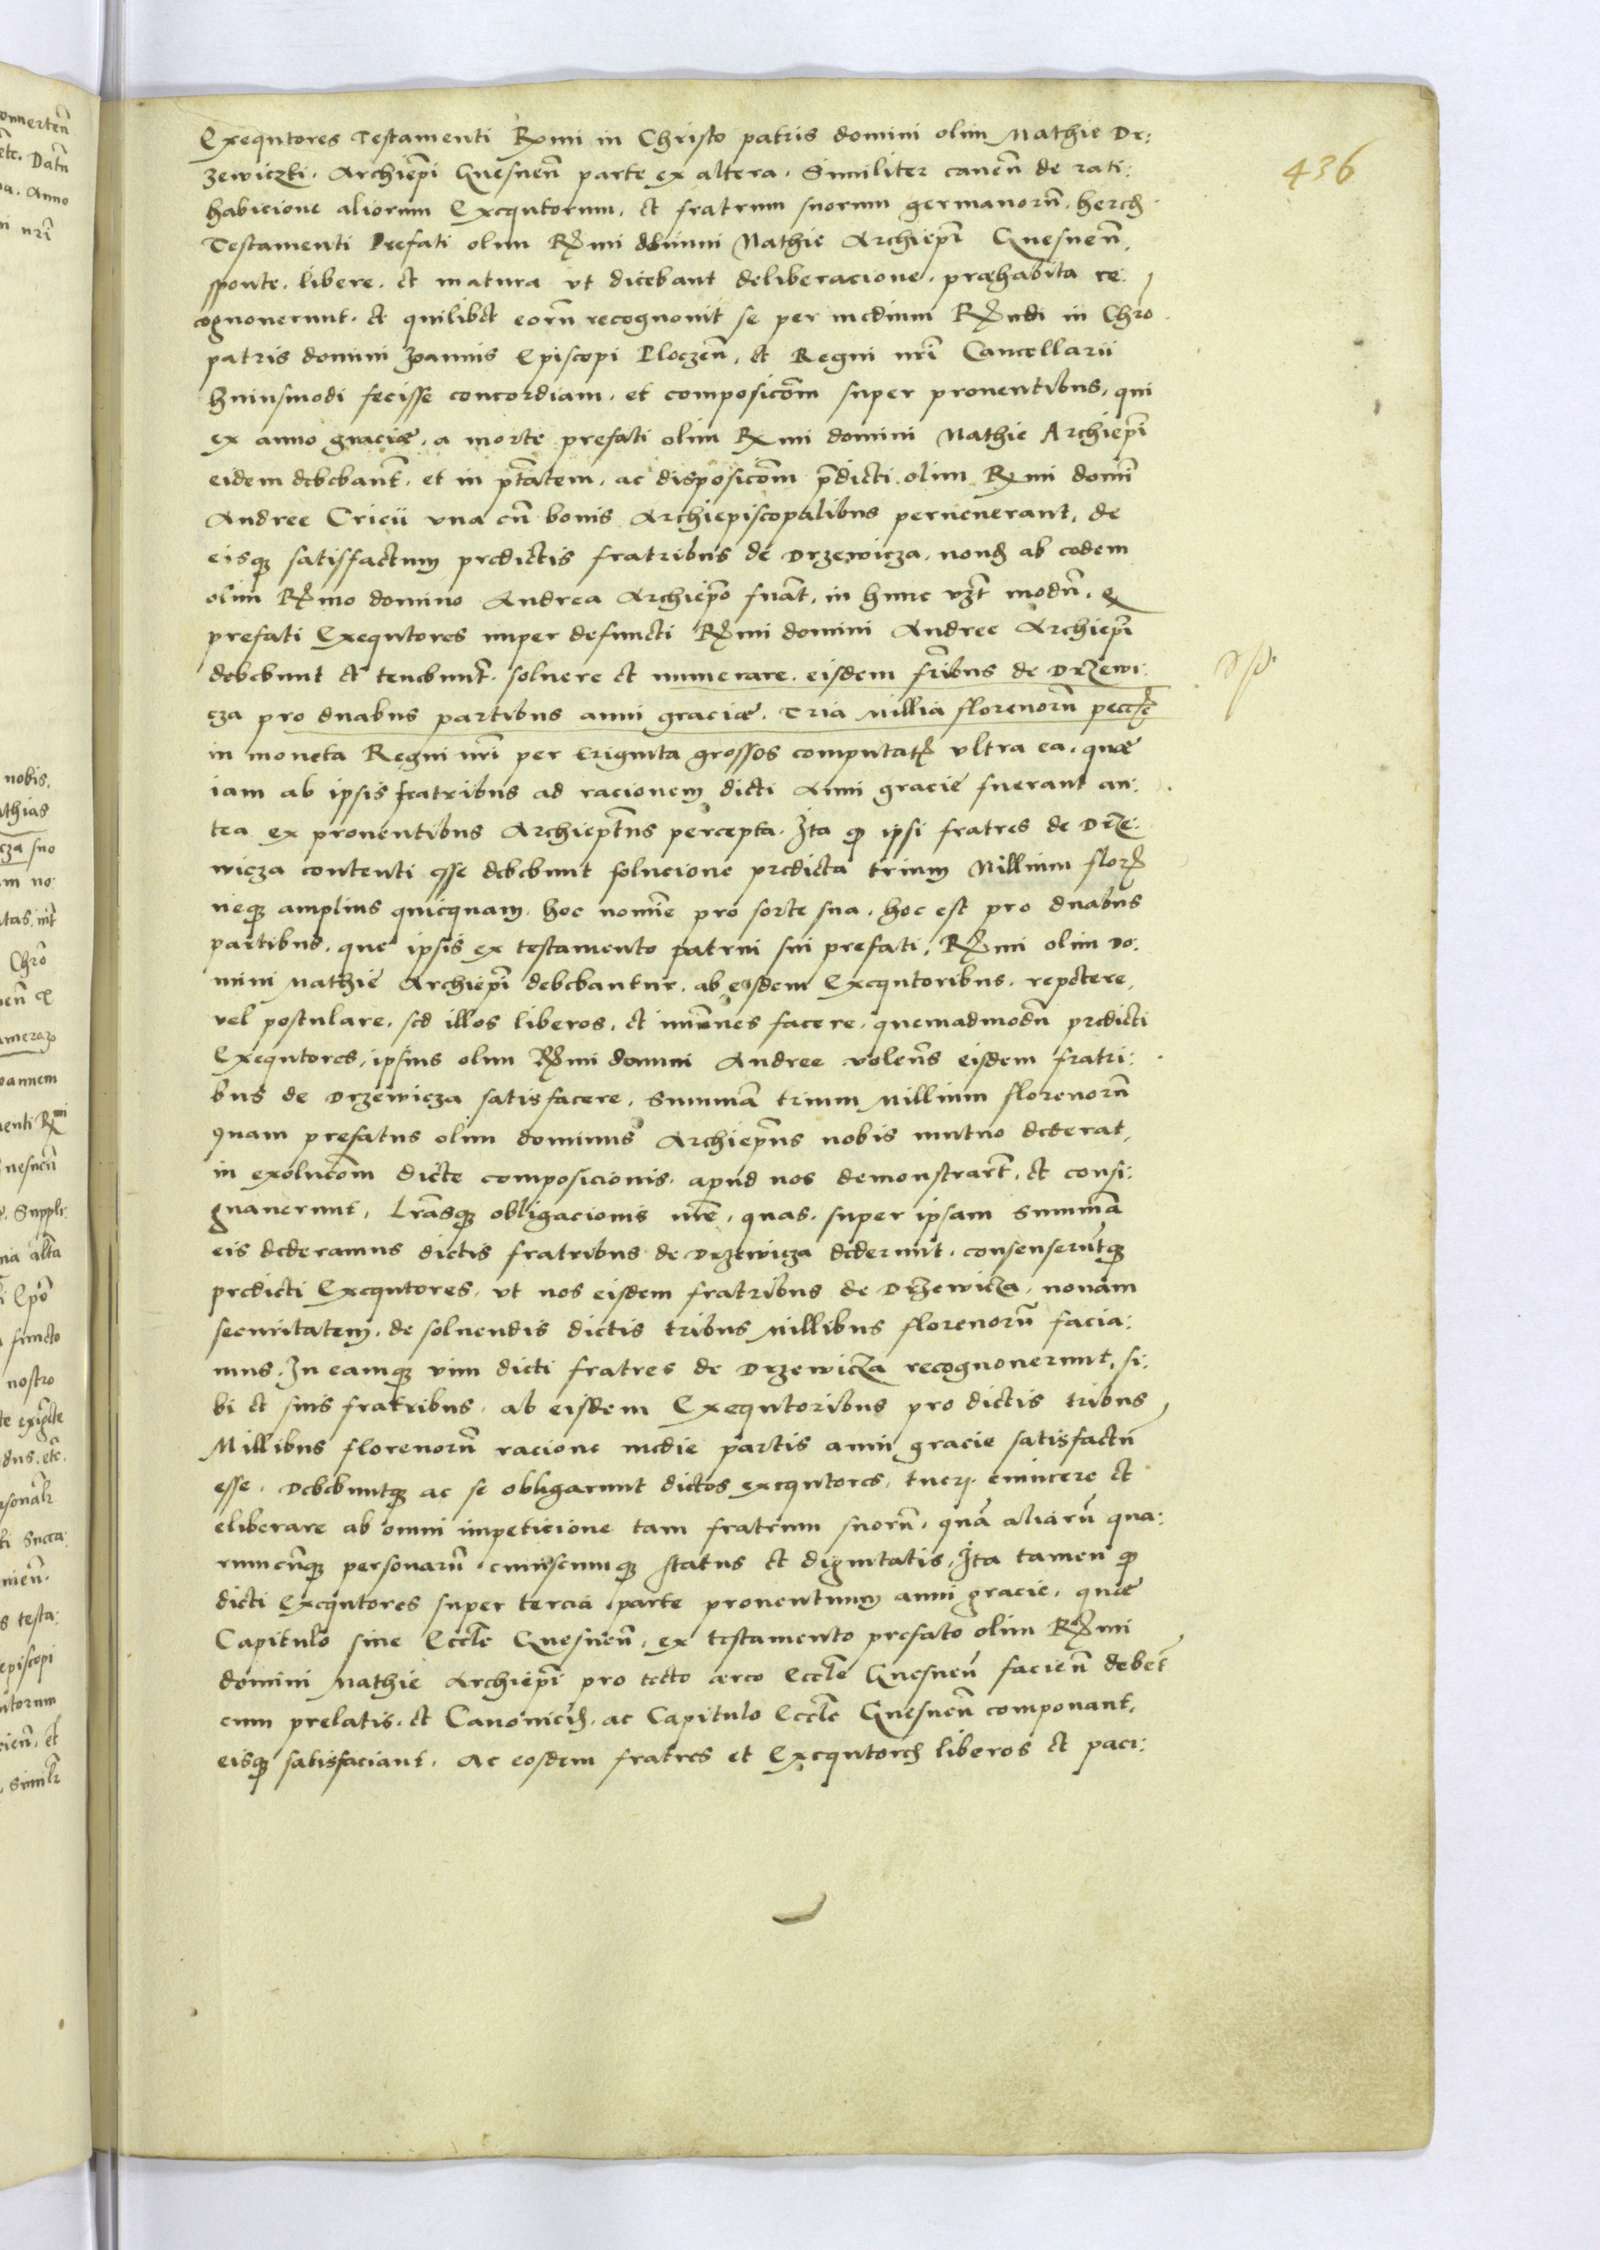 436
Exequtores Testamenti Rxmi in Christo patris domini olim Mathie Dr:
zewiczki. Archiepī Gnesnen̄ parte ex altera. Similiter caven̄ de rati:
habicione aliorum Exequtorum, et fratrum suorum germanorū, hered
Testamenti Prefati olim Rxmi domini Mathie Archiepī Gnesnen̄,
sponte, libere, et matura vt dicebant deliberacione, præhabita re:
cognouerunt, et quilibet eorū recognouit se per medium Rxndi in Chro
patris domini Joannis Episcopi Ploczen̄, et Regni nrī Cancellarii
huiusmodi fecisse concordiam, et composicōm super prouentibus, qui
ex anno graciæ, a morte prefati olim Rxmi domini Mathie Archiepī
eidem debebant̄, et in ptātem, ac disposicōm p̄dicti olim Rxmi domī
Andree Cricii vna cū bonis Archiepiscopalibus peruenerant, de
eisq3 satisfactum predictis fratribus de Drzewicza, nond ab eodem
olim Rxmo domino Andrea Archiepō fuāt, in hunc vz̄t modū, q
prefati Exequtores nuper defuncti Rxmi domini Andree Archiepī
debebunt et tenebunt̄ soluere et numerare eisdem frībus de Drzewi:
cza pro duabus partibus anni graciæ, Tria Millia florenorū pecc
in moneta Regni nrī per triginta grossos computat vltra ea, quæ
iam ab ipsis fratribus ad racionem dicti Anni gracie fuerant an:
tea ex prouentibus Archiepībus percepta. Ita q ipsi fratres de Drze:
wicza contenti esse debebunt solucione predicta trium Millium flor
neq3 amplius quicquam, hoc nomīe pro sorte sua, hoc est pro duabus
partibus, que ipsis ex testamento patrui sui prefati, Rxmi olim Do:
mini Mathie Archiepī debebantur, ab eisdem Exequtoribus, repetere,
vel postulare, sed illos liberos, et immūes facere, quemadmodū predicti
Exequtores, ipsius olim Rxmi domini Andree volen̄s eisdem fratri:
bus de Drzewicza satisfacere, Summā trium Millium florenorū
quam prefatus olim dominus Archiepūs nobis mutuo dederat,
in exolucōm dicte composicionis, apud nos demonstrarūt, et consi:
gnauerunt, Lrāsq3 obligacionis nrē, quas super ipsam Summā
eis dederamus dictis fratribus de Drzewicza dederunt, consenserūtq3
predicti Exequtores, vt nos eisdem fratribus de Drzewicza, nouam
securitatem, de soluendis dictis tribus Millibus florenorū facia:
mus. In eamq3 vim dicti fratres de Drzewicza recognouerunt, si:
bi et suis fratribus, ab eisdem Exequtoribus pro dictis tribus
Millibus florenorū racione medie partis anni gracie satisfactū
esse. Debebuntq3 ac se obligarunt dictos exequtores, tueri, euincere et
eliberare ab omni impeticione tam fratrum suorū, quā aliarū qua:
rumcūq3 personarū, cuiuscumq3 status et dignitatis, Ita tamen q
dicti Exequtores super tercia parte prouentuum anni gracie, quæ
Capitulo siue Eccle Gnesnen̄, ex testamento prefato olim Rxmi
domini Mathie Archiepī pro tecto æreo Eccle Gnesnen̄ facien̄ debet̄
cum prelatis, et Canonicis, ac Capitulo Eccle Gnesnen̄ componant,
eisq3 satisfaciant, Ac eosdem fratres et Exequtores liberos et paci: